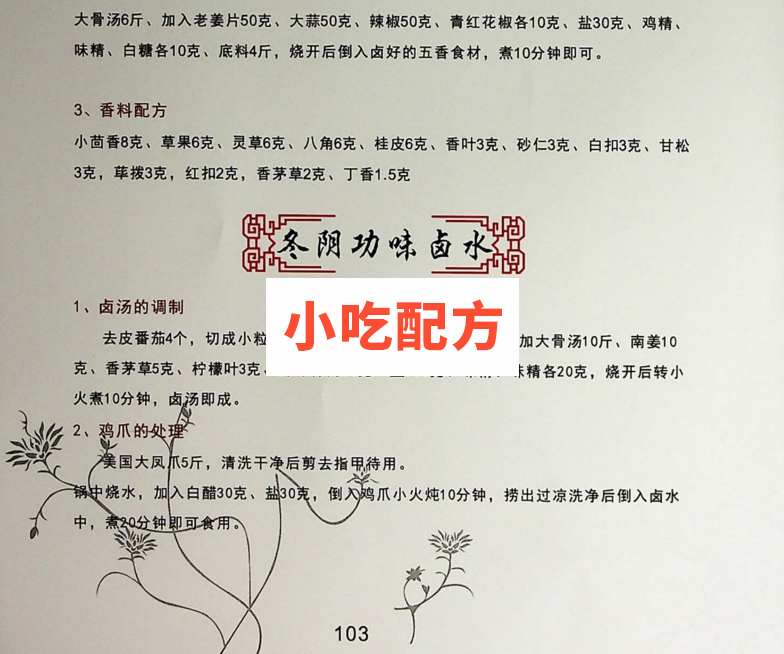 大骨汤6斤、加入老姜片50克、大蒜50克、辣椒50克、青红花椒各10克、盐30克、鸡精、
味精、白糖各10克、底料4斤，烧开后倒入卤好的五香食材，煮10分钟即可。
3、香料配方
小茴香8克、草果6克、灵草6克、八角6克、桂皮6克、香叶3克、砂仁3克、白扣3克、甘松
3克，荜拨3克，红扣2克，香茅草2克、丁香1.5克
冬阴功味卤水
1、卤汤的调制
小吃配方
去皮番茄4个，切成小粒 加大骨汤10斤、南姜10
克、香茅草5克、柠檬叶3克、 味精各20克，烧开后转小
火煮10分钟，卤汤即成。
2、鸡爪的处理
美国大凤爪5斤，清洗干净后剪去指甲待用。
锅中烧水，加入白醋30克、盐30克，倒入鸡爪小火炖10分钟，捞出过凉洗净后倒入卤水
中，煮20分钟即可食用。
103